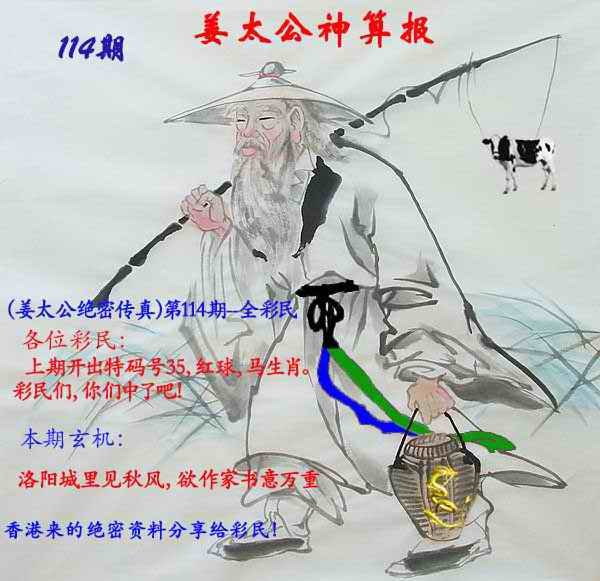 姜太公神算报
114期
(姜太公绝密传真)第114期--全彩民
各位彩民:
上期开出特码号35,红球,马生肖。
彩民们,你们中了吧!
本期玄机:
洛阳城里见秋风,欲作家书意万重
香港来的绝密资料分享给彩民!